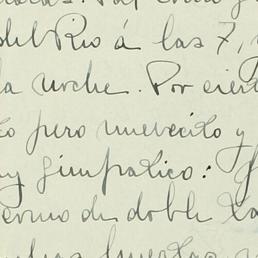 del Rio á las 7,
la noche. Por cier
to pero nuevecito y
uy simpatico:
como de doble ta